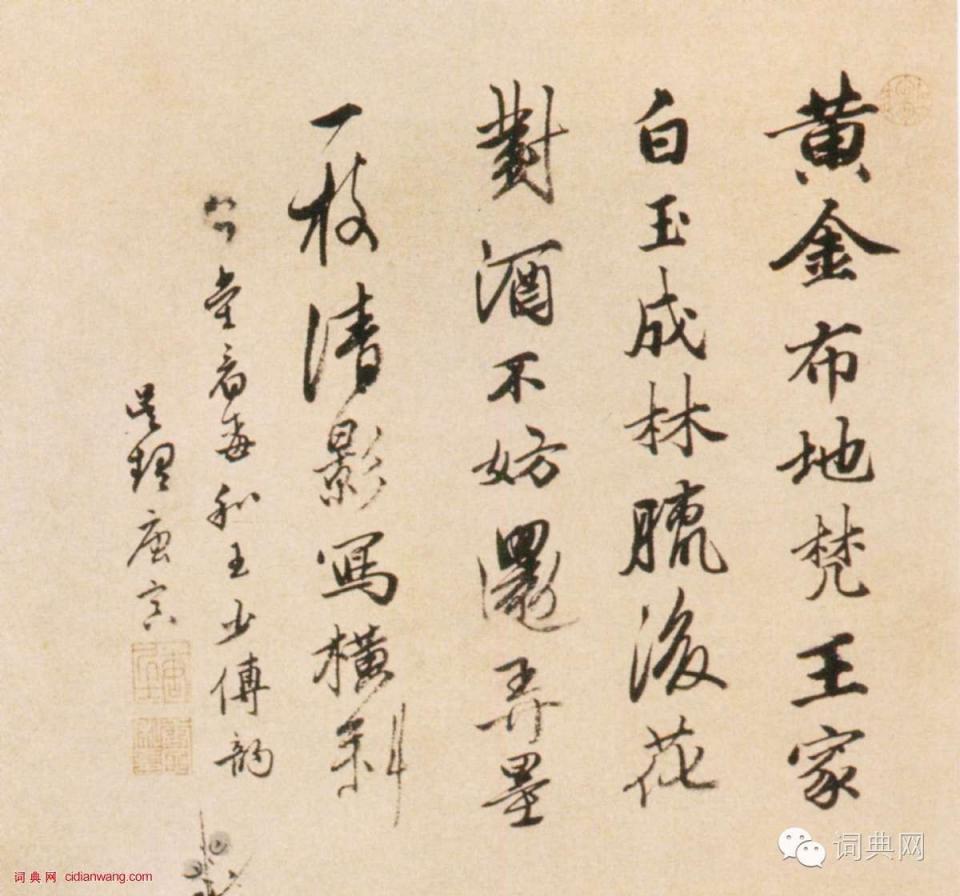 黄金布地梵王家
白玉成林臘後花
對酒不妨還弄墨
一枝清影寫橫斜
堂看梅和王少傅韵
吳趨唐寅
词典网
词典网 cidianwang.com